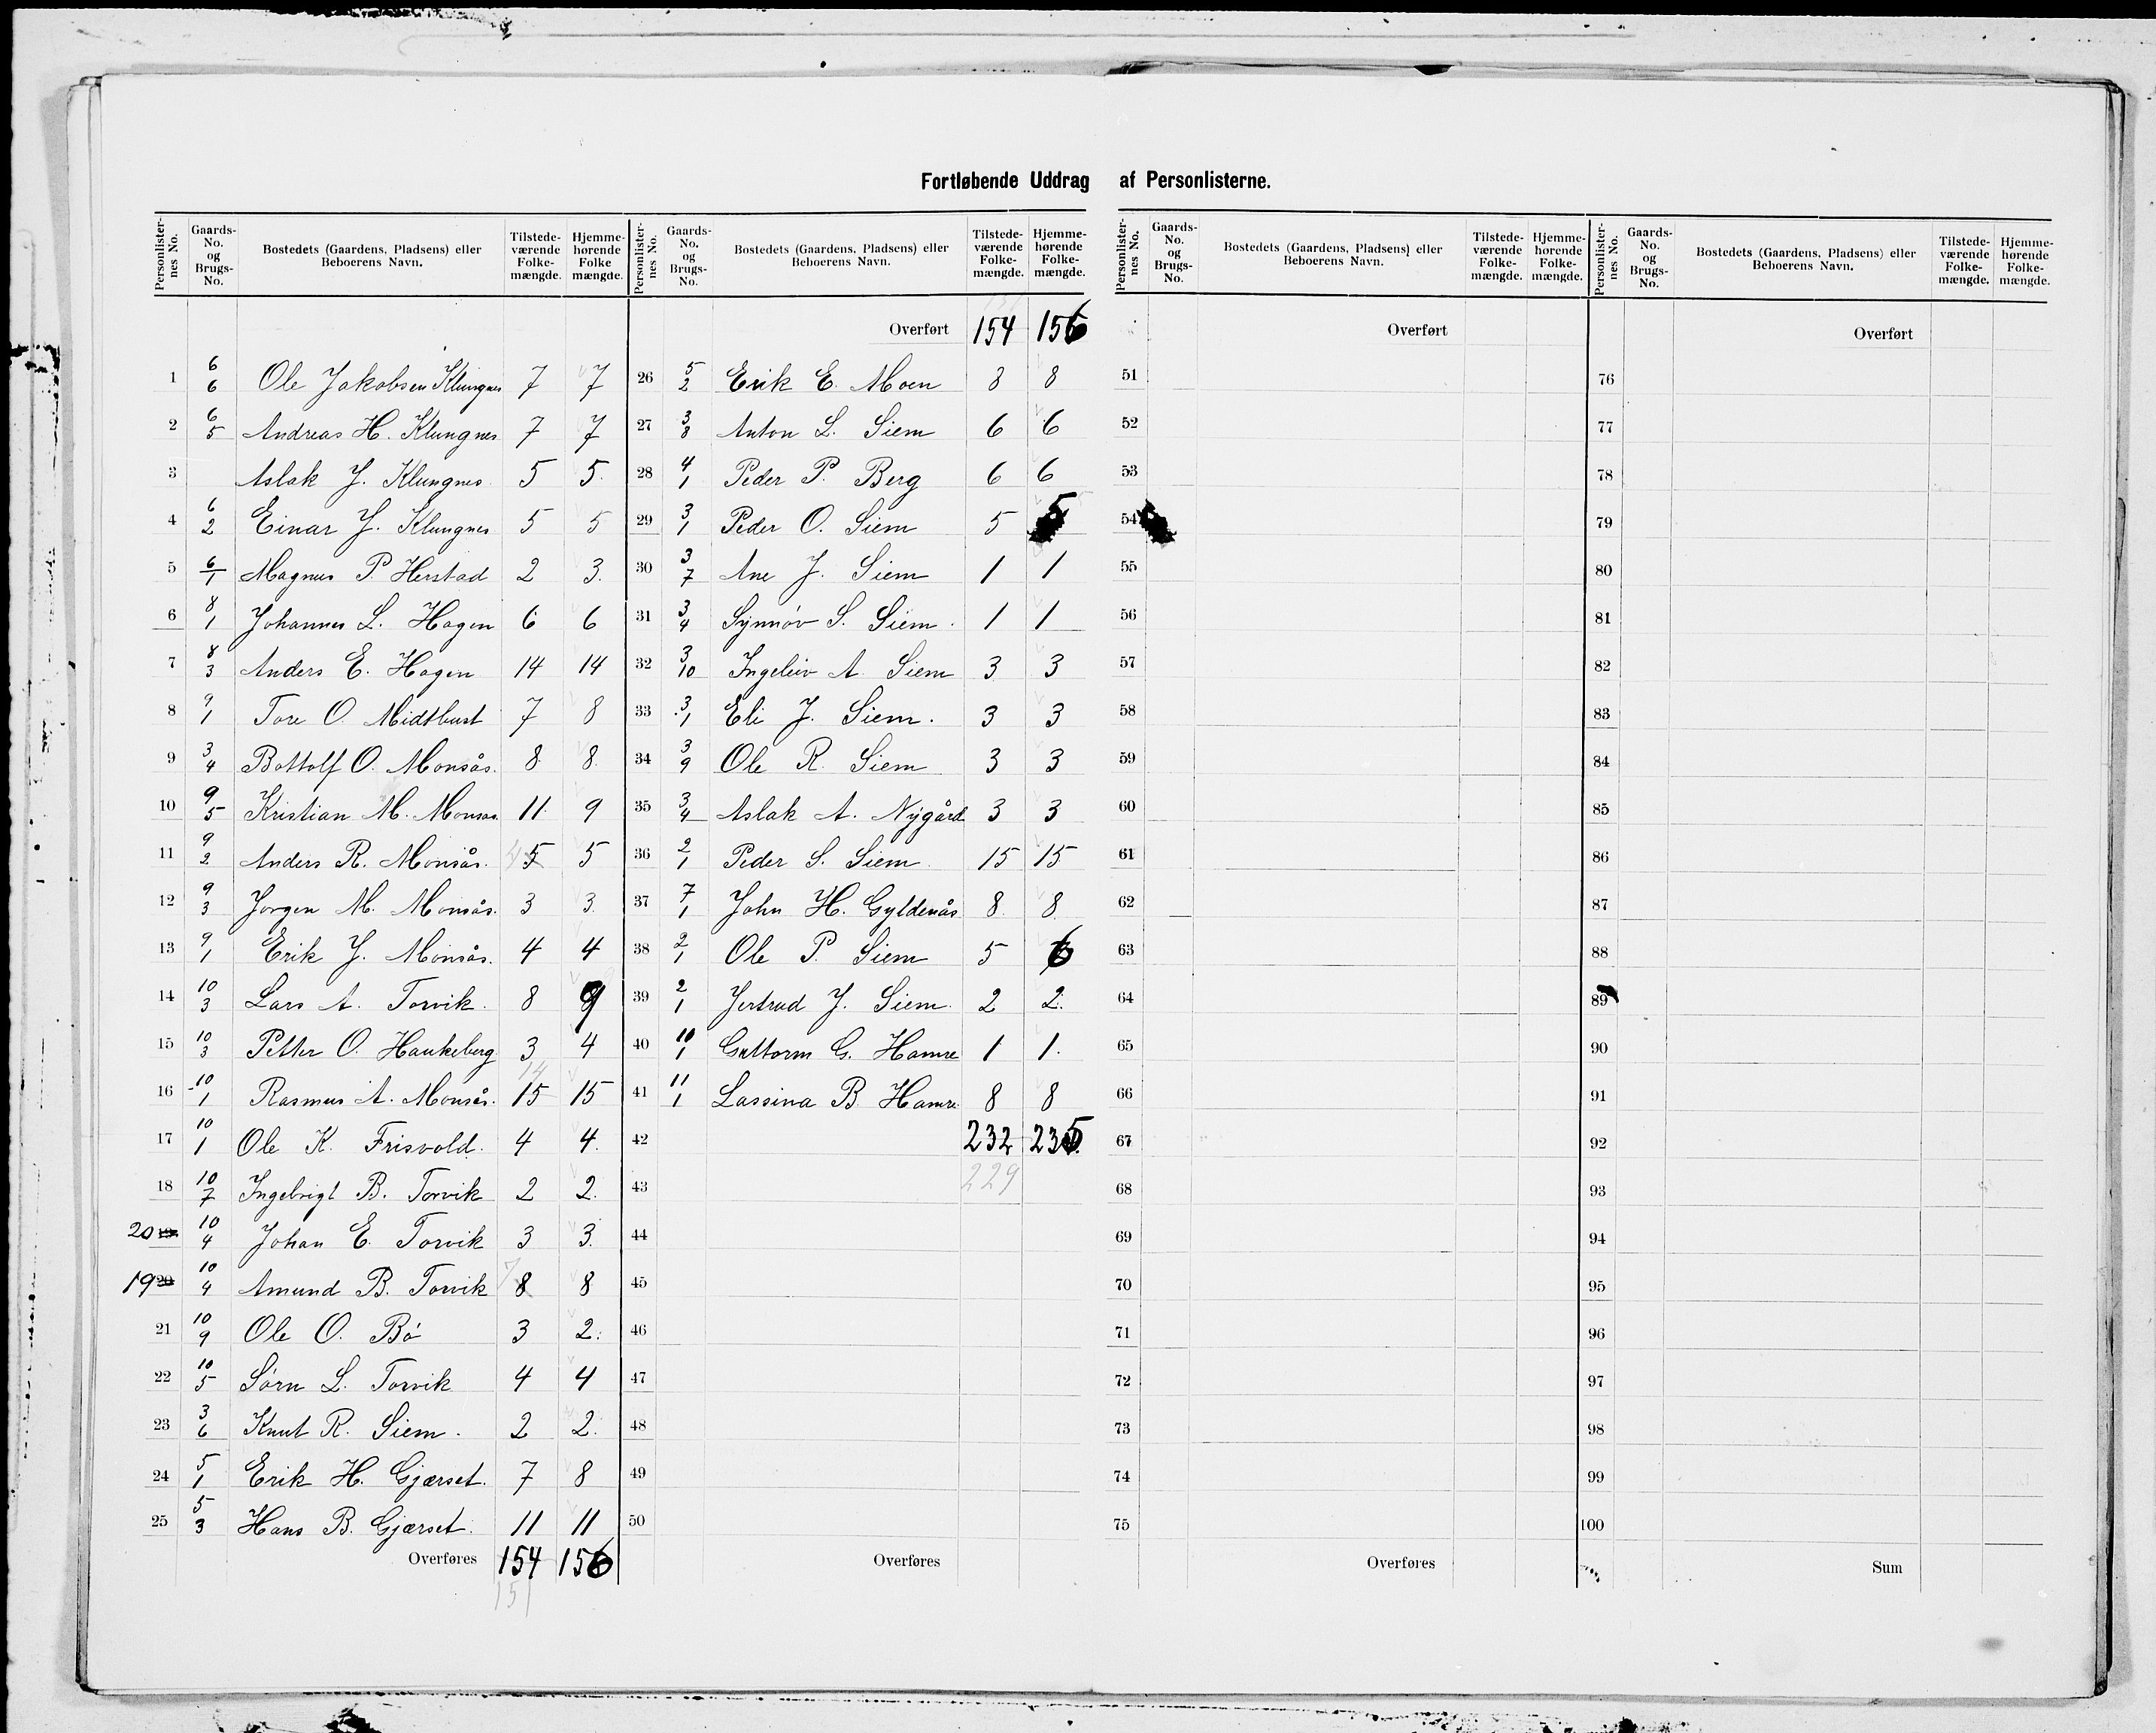 Fortløbende Uddrag af Personlisterne.
Personlister-nes No. | Gaards-No. og Brugs-No. | Bostedets (Gaardens, Pladsens) eller Beboerens Navn. | Tilstede-værende Folke-mængde. | Hjemme-hørende Folke mængde.
1 | 6/6 | Ole Jakobsen Klungnes | 7 | 7
2 | 6/5 | Andreas H. Klungnes | 7 | 7
3 | Aslak J. Klungnes | 5 | 5.
4 | 6/2 | Einar J. Klungnes | 5 | 5
5 | 6/1 | Magnus P. Herstad | 2 | 3.
6 | 8/1 | Johannes L. Hagen | 6 | 6
7 | 8/3 | Anders E. Hagen | 14 | 14
8 | 9/1 | Tore O. Midtbust | 7 | 8
9 | 3/4 | Bottolf O. Monsås. | 8 | 8.
10 | 9/5 | Kristian M. Monsås. | 11 | 9
11 | 9/2 | Anders R. Monsås. | 4 5 | 5
12 | 9/3 | Jørgen M. Monsås. | 3 | 3.
13 | 9/1 | Erik J. Monsås. | 4 | 4
14 | 10/3 | Lars A. Torvik. | 8 | 9
15 | 10/3 | Petter O. Haukeberg | 3 | 4
16 | 10/1 | Rasmus A. Monsås. | 14 15 | 15
17 | 10/1 | Ole K. Frisvold. | 4 | 4.
18 | 10/7 | Ingebrigt B. Torvik | 2 | 2.
20 19 | 10/4 | Johan E. Torvik | 3 | 3.
19 20 | 10/4 | Amund B. Torvik | 7 8 | 8
21 | 10/9 | Ole O. Bö | 3 | 2.
22 | 10/5 | Sörn L. Torvik | 4 | 4
23 | 3/6 | Knut R. Siem. | 2 | 2.
24 | 5/1 | Erik H. Gjærset. | 7 | 8
25 | 5/3 | Hans B. Gjærset. | 11 | 11
Overføres | 154 | 156
151
Personlister-nes No. | Gaards-No. og Brugs-No. | Bostedets (Gaardens, Pladsens) eller Beboerens Navn. | Tilstede-værende Folke-mængde. | Hjemme-hørende Folke-mængde.
151
Overført | 154 | 156
26 | 5/2 | Erik E. Moen | 8 | 8
27 | 3/8 | Anton L. Siem | 6 | 6
28 | 4/1 | Peder P. Berg | 6 | 6
29 | 3/1 | Peder O. Siem | 5 | 5
30 | 3/7 | Ane J. Siem | 1 | 1
31 | 3/4 | Synnöv S. Siem. | 1 | 1
32 | 3/10 | Ingeleiv A. Siem | 3 | 3
33 | 3/1 | Eli J. Siem. | 3 | 3
34 | 3/9 | Ole R. Siem | 3 | 3
35 | 3/4 | Aslak A. Nygård | 3 | 3
36 | 2/1 | Peder S. Siem. | 15 | 15
37 | 7/1 | John H. Gyldenås | 8 | 8
38 | 2/1 | Ole P. Siem | 5 | 6
39 | 2/1 | Jertrud J. Siem. | 2 | 2.
40 | 10/1 | Guttorm G. Hamre | 1 | 1.
41 | 11/1 | Lassina B. Hamre | 8 | 8
42 | 232 | 235
43 | 229
44
45
46
47
48
49
50
Overføres
Personlister-nes No. | Gaards-No. og Brugs-No. | Bostedets (Gaardens, Pladsens) eller Beboerens Navn. | Tilstede-værende Folke-mængde. | Hjemme-hørende Folke-mængde.
Overført
51
52
53
54
55
56
57
58
59
60
61
62
63
64
65
66
67
68
69
70
71
72
73
74
75
Overføres
Personlister-nes No. | Gaards-No. og Brugs-No. | Bostedets (Gaardens, Pladsens) eller Beboerens Navn. | Tilstede-værende Folke-mængde. | Hjemme-hørende Folke-mængde.
Overført
76
77
78
79
80
81
82
83
84
85
86
87
88
89
90
91
92
93
94
95
96
97
98
99
100
Sum